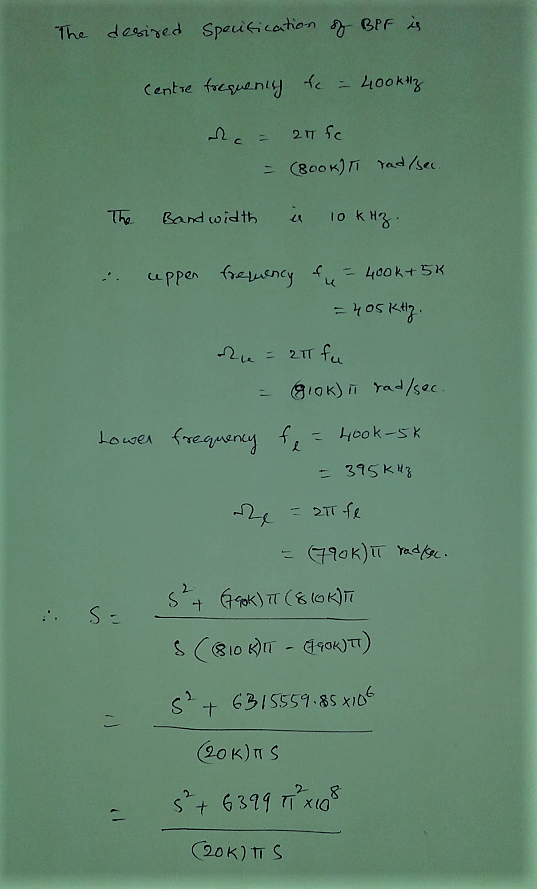 The desired Specification of BPF is
Centre frequency fc = 400KHz
Ωc = 2π fc
= (800K)π rad/sec.
The Bandwidth is 10 KHz.
∴ upper frequency fu = 400K+5K
= 405KHz.
Ωu = 2π fu
= (810K)π rad/sec.
Lower frequency fl = 400K-5K
= 395KHz
Ωl = 2π fl
= (790K)π rad/sec.
∴ S = S² + (790K)π (810K)π
S ((810K)π - (790K)π)
= S² + 6315559.85 x10⁶
(20K)π S
= S² + 6399 π² x10⁸
(20K)π S